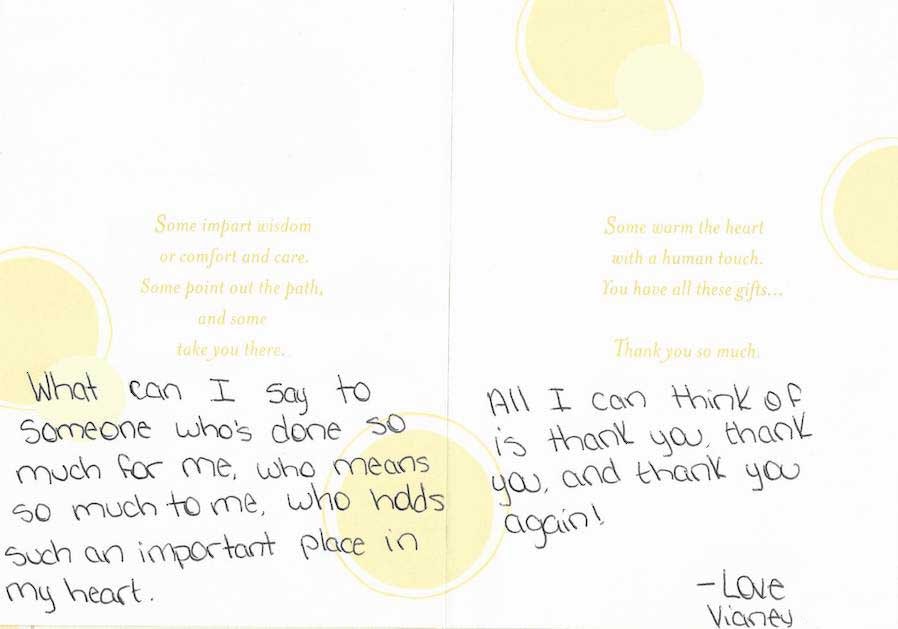 Some impart wisdom
or comfort and care.
Some point out the path,
and some
take you there.
What can I say to
someone who's done so
much for me, who means
so much to me, who holds
such an important place in
my heart.
Some warm the heart
with a human touch.
You have all these gifts...
Thank you so much.
All I can think of
is thank you, thank
you, and thank you
again!
- Love
Vianey